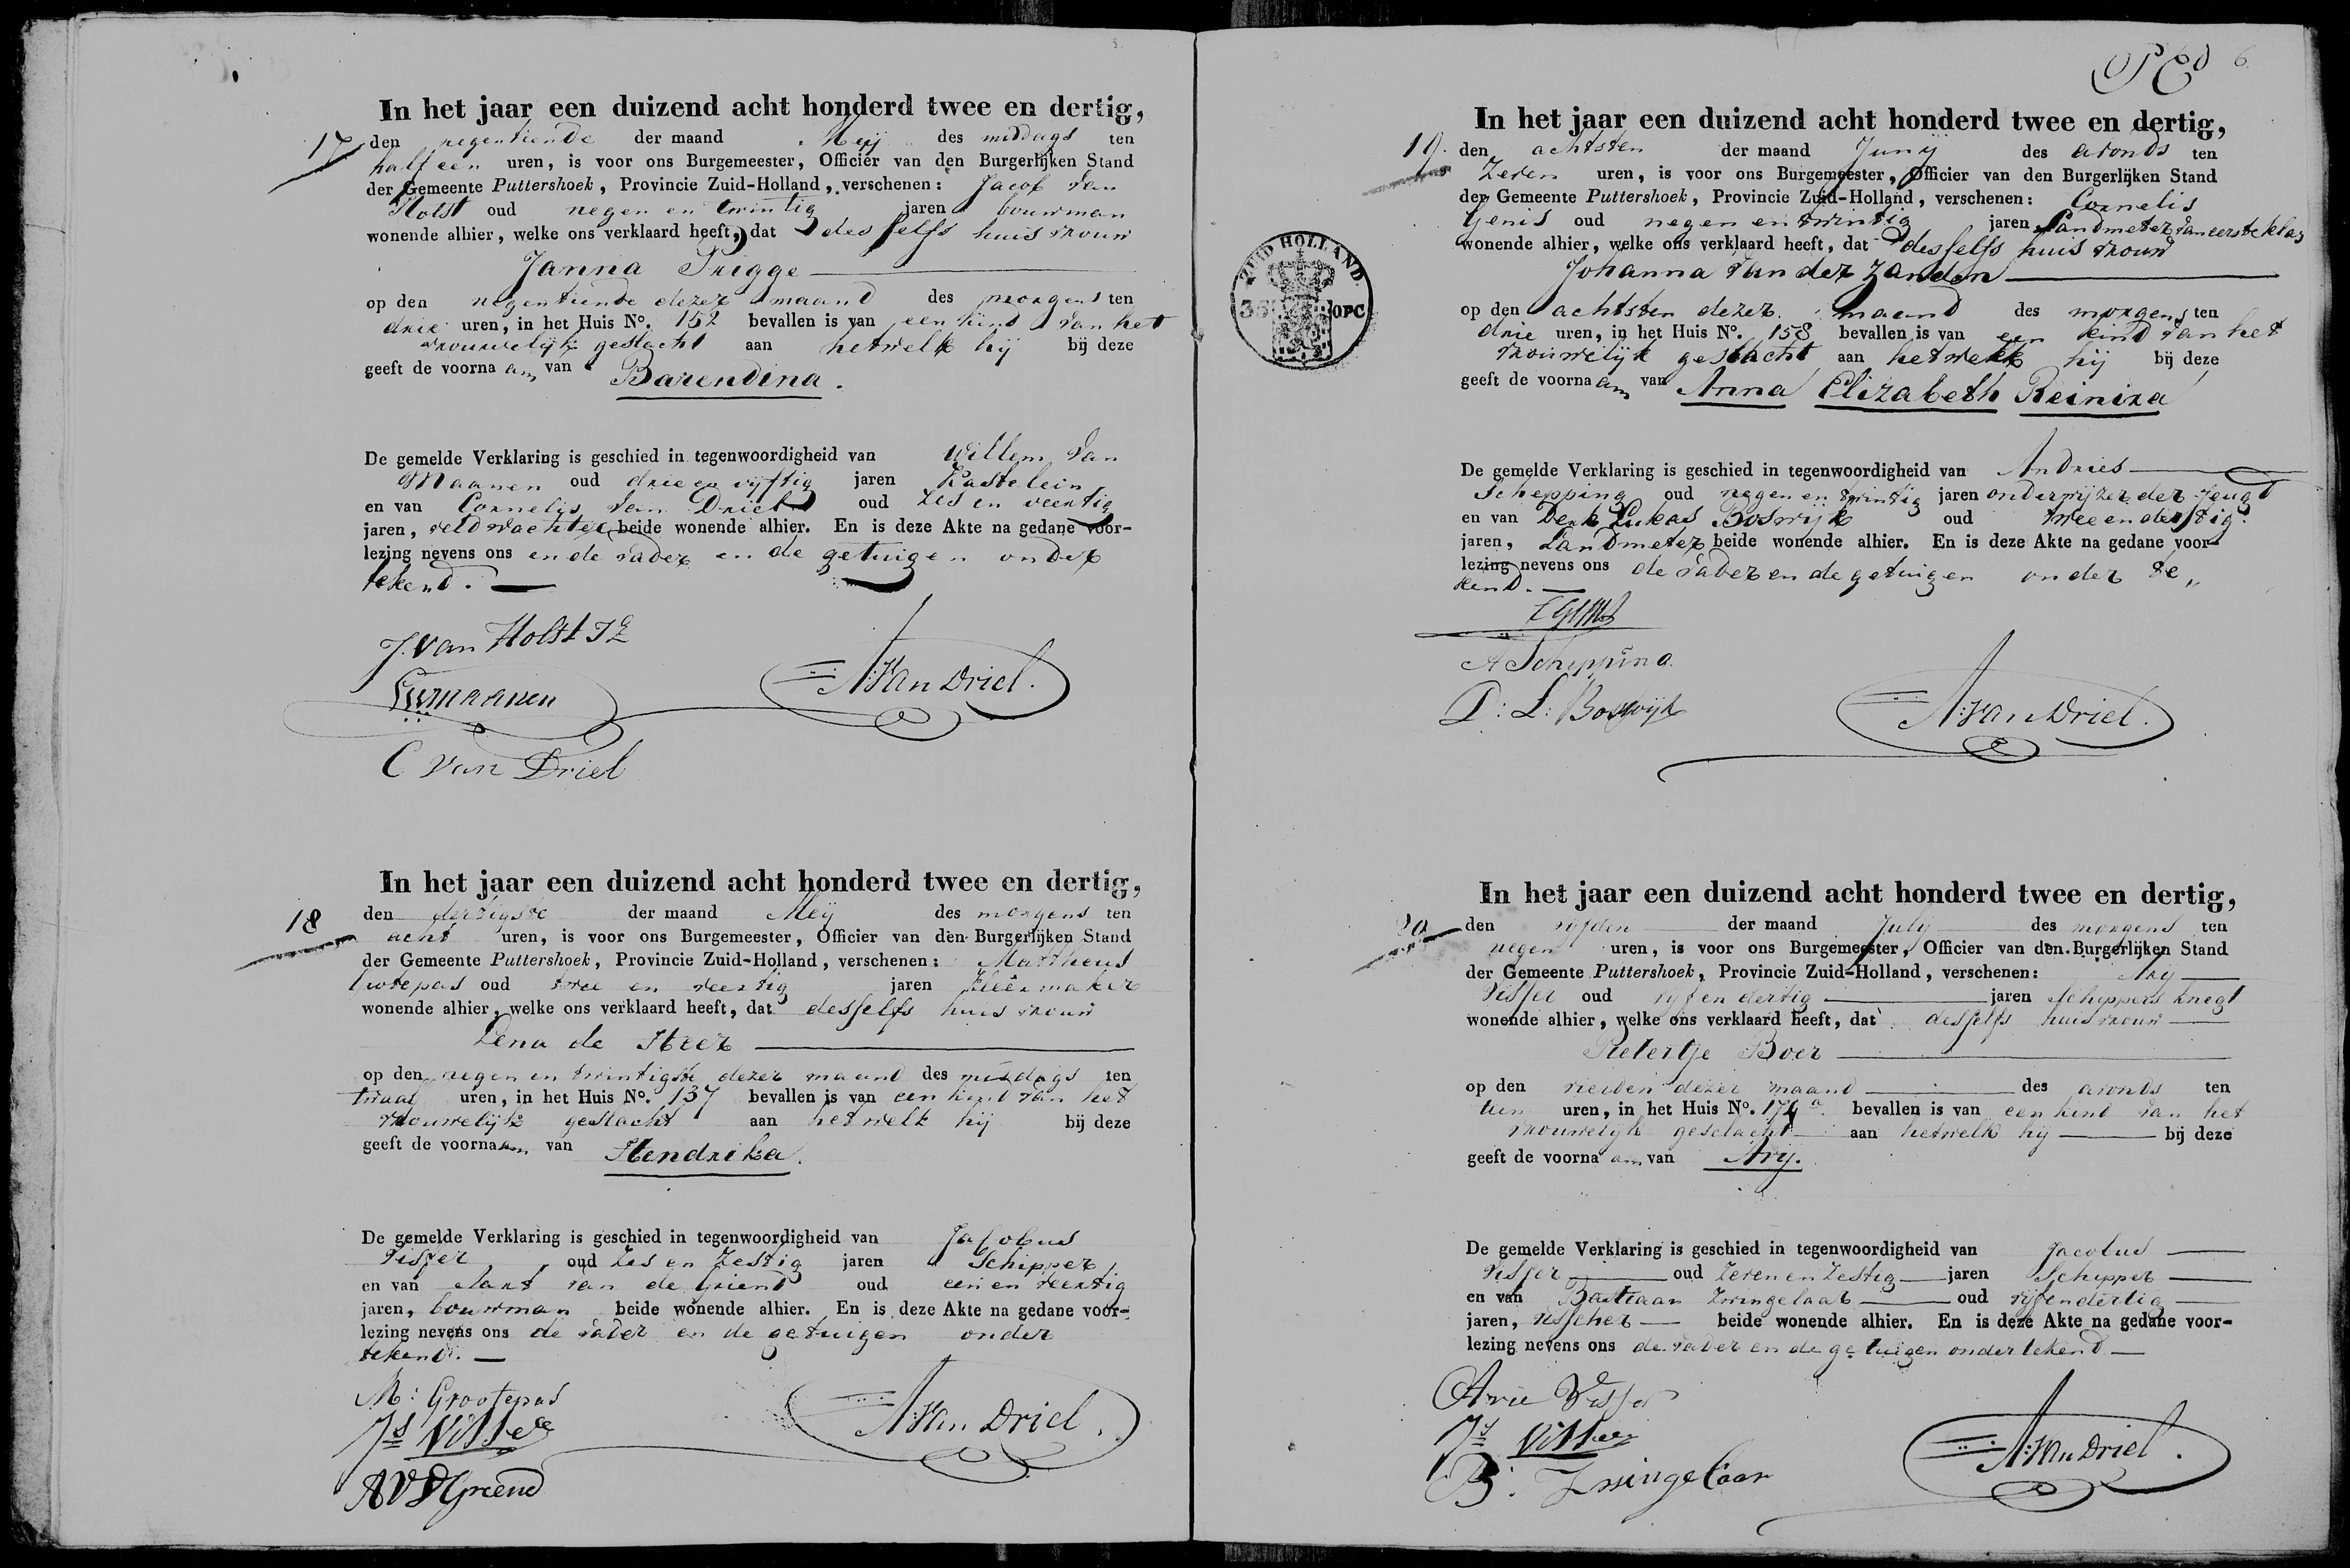 In het jaar een duizend acht honderd twee en dertig,
17 den negentiende der maand Meij des middags ten
half een uren, is voor ons Burgemeester, Officier van den Burgerlijken Stand
der Gemeente Puttershoek, Provincie Zuid-Holland, verschenen: Jacob van
Holst oud negen en twintig jaren bouwman
wonende alhier, welke ons verklaard heeft, dat desselfs huis vrouw
Janna Prigge
op den negentiende dezer maand des morgens ten
drie uren, in het Huis No. 152 bevallen is van een kind van het
vrouwelijk geslacht aan hetwelk hij bij deze
geeft de voornaam van Barendina.
De gemelde Verklaring is geschied in tegenwoordigheid van Willem van
Maanen oud drie en vijftig jaren Kastelein
en van Cornelis van Driel oud zes en veertig
jaren, veldwachter beide wonende alhier. En is deze Akte na gedane voor-
lezing nevens ons en de vader en de getuigen onder
tekend.
J. van Holst Jz
Wvmaanen
A: van Driel.
C van Driel
In het jaar een duizend acht honderd twee en dertig,
18 den dertigste der maand Meij des morgens ten
acht uren, is voor ons Burgemeester, Officier van den Burgerlijken Stand
der Gemeente Puttershoek, Provincie Zuid-Holland, verschenen: Mattheus
Grotepas oud twee en veertig jaren kleermaker
wonende alhier, welke ons verklaard heeft, dat desselfs huis vrouw
Lena de Heer
op den negen en twintigste dezer maand des middags ten
twaalf uren, in het Huis No. 137 bevallen is van een kind van het
vrouwelijk geslacht aan hetwelk hij bij deze
geeft de voornaam van Hendrika.
De gemelde Verklaring is geschied in tegenwoordigheid van Jacobus
Visser oud zes en zestig jaren Schipper
en van Aart van de Griend oud een en veertig
jaren, bouwman beide wonende alhier. En is deze Akte na gedane voor-
lezing nevens ons de vader en de getuigen onder
tekend.
M: Grootepas
Js Visser
A: van Driel.
A V D Griend
6
In het jaar een duizend acht honderd twee en dertig,
19. den achtsten der maand Junij des avonds ten
zeven uren, is voor ons Burgemeester, Officier van den Burgerlijken Stand
der Gemeente Puttershoek, Provincie Zuid-Holland, verschenen: Cornelis
Genis oud negen en twintig jaren Landmeter van eerste klas
wonende alhier, welke ons verklaard heeft, dat desselfs huis vrouw
Johanna van der Zanden
ZUID HOLLAND
35 OPC
op den achtsten dezer maand des morgens ten
drie uren, in het Huis No. 158 bevallen is van een kind van het
vrouwelijk geslacht aan hetwelk hij bij deze
geeft de voornaam van Anna Elizabeth Reinira
De gemelde Verklaring is geschied in tegenwoordigheid van Andries
Schepping oud negen en twintig jaren onderwijzer der jeugd
en van Derk Lukas Boswijk oud twee en dertig
jaren, Landmeter beide wonende alhier. En is deze Akte na gedane voor-
lezing nevens ons de vader en de getuigen onder te„
kend.
CGenis
A Schepping.
D: L: Boswijk
A: van Driel.
In het jaar een duizend acht honderd twee en dertig,
20 den vijfden der maand July des morgens ten
negen uren, is voor ons Burgemeester, Officier van den Burgerlijken Stand
der Gemeente Puttershoek, Provincie Zuid-Holland, verschenen: Ary
Visser oud vijf en dertig jaren Schippers knegt
wonende alhier, welke ons verklaard heeft, dat desselfs huisvrouw
Pietertje Boer
op den vierden dezer maand des avonds ten
tien uren, in het Huis No. 174 a. bevallen is van een kind van het
vrouwelijk geslacht aan hetwelk hij bij deze
geeft de voornaam van Ary.
De gemelde Verklaring is geschied in tegenwoordigheid van Jacobus
Visser oud zeven en zestig jaren Schipper
en van Bastiaan Zwingelaar oud vijf en dertig
jaren, visscher beide wonende alhier. En is deze Akte na gedane voor-
lezing nevens ons de vader en de getuigen onder tekend
Arie Visser
Js Visser
B: Zwingelaar
A: van Driel.